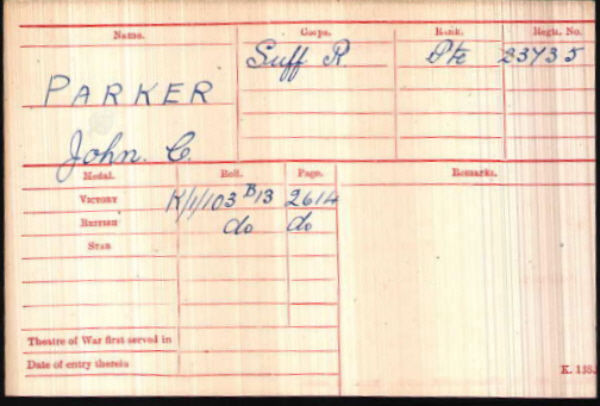 Name. Corps. Rank. Regtl. No.
Suff R. Pte 23735
PARKER
John. C.
Medal. Roll. Page. Remarks.
VICTORY K/1/103 B13 2614
BRITISH do do
STAR
Theatre of War first served in
Date of entry therein
K. 1380